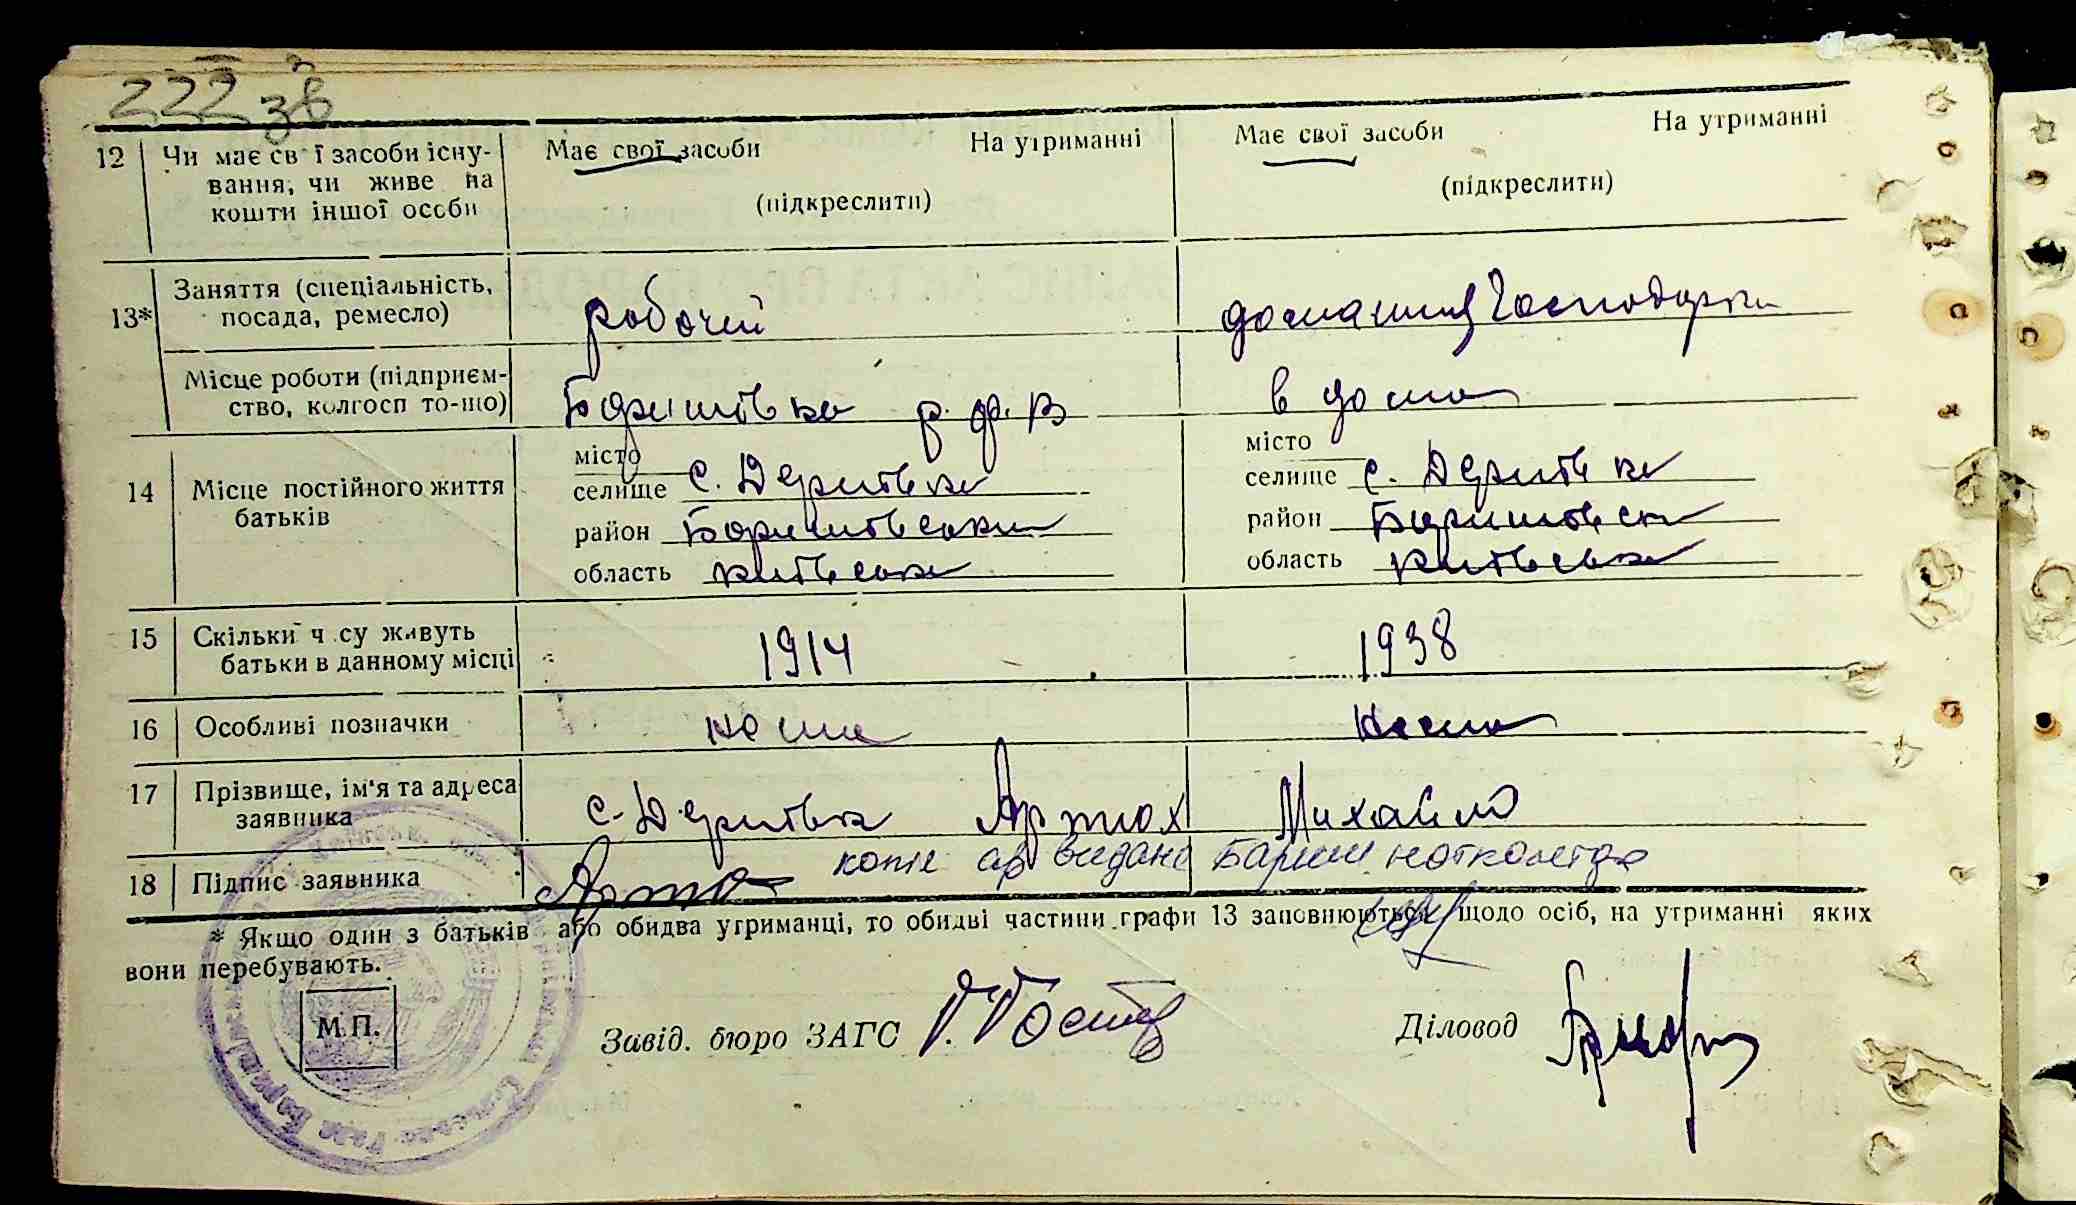 222 зв
12 Чи має св ї засоби існу- Має свої засоби На утриманні Має свої засоби На утриманні
вання, чи живе на (підкреслити) (підкреслити)
кошти іншої особи
13* Заняття (спеціальність, робочий домашня господарка
посада, ремесло)
Місце роботи (підприєм- в дома
ство, колгосп то-що)
14 Місце постійного життя місто місто
батьків селище с. Дернівка селище с. Дернівка
район Баришівський район Баришівськ
область Київська область Київська
15 Скільки ч су живуть 1914 1938
батьки в данному місці
16 Особливі позначки нема нема
17 Прізвище, ім'я та адреса с. Дернівка Артюх Михайло
заявника
18 Підпис заявника копіє видано Бариш.
* Якщо один з батьків або обидва утриманці, то обидві частини графи 13 заповнюються щодо осіб, на утриманні яких
вони перебувають.
М.П. Завід. бюро ЗАГС Діловод